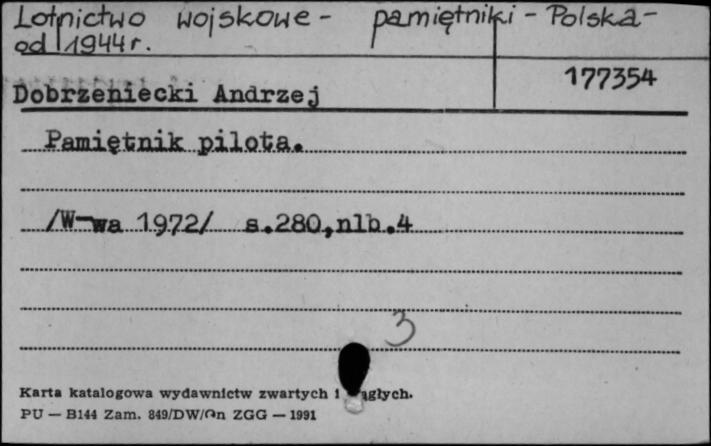 Lotnictwo wojskowe - pamiętniki - Polska -
od 1944 r.
177354
Dobrzeniecki Andrzej
Pamiętnik pilota.
/W-wa 1972/ s.280,nlb.4
3
Karta katalogowa wydawnictw zwartych i
PU — B144 Zam. 849/DW/On ZGG — 1991